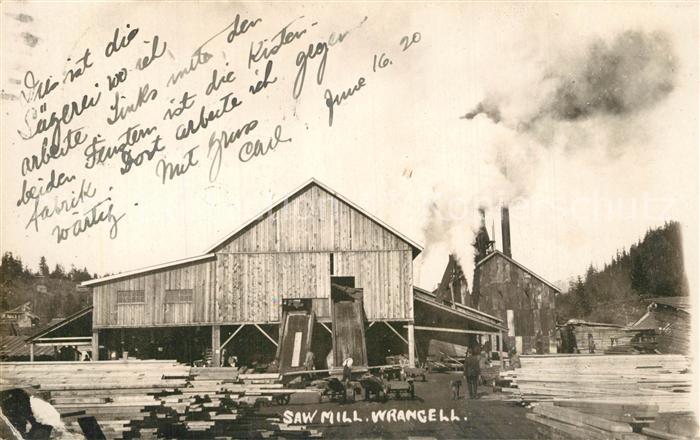 Das ist die
Sägerei wo ich
arbeite. Links unter den
beiden Fenstern ist die Kisten-
fabrik. Dort arbeite ich gegen
wärtig.
Mit Gruss
Carl
June 16. 20
SAW MILL. WRANGELL.